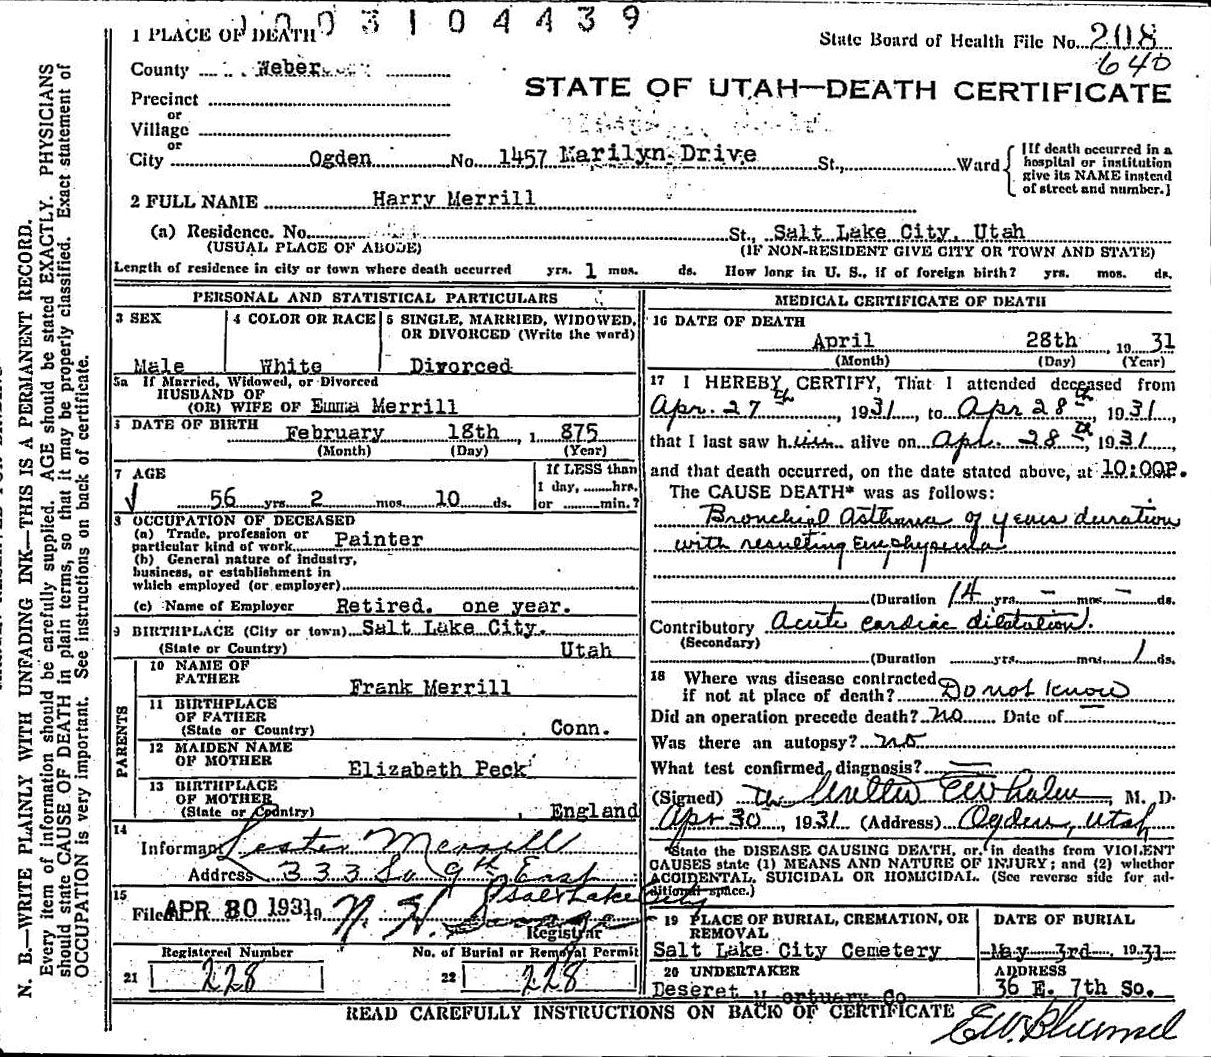 1003104439
1 PLACE OF DEATH
State Board of Health File No. 208
640
County Weber
STATE OF UTAH—DEATH CERTIFICATE
Precinct
or
Village
or
City Ogden No. 1457 Marilyn Drive St., Ward
[If death occurred in a hospital or institution give its NAME instead of street and number.]
2 FULL NAME Harry Merrill
(a) Residence. No. St., Salt Lake City, Utah
(USUAL PLACE OF ABODE) (IF NON-RESIDENT GIVE CITY OR TOWN AND STATE)
Length of residence in city or town where death occurred yrs. 1 mos. ds. How long in U. S., if of foreign birth? yrs. mos. ds.
PERSONAL AND STATISTICAL PARTICULARS
3 SEX
Male
4 COLOR OR RACE
White
5 SINGLE, MARRIED, WIDOWED, OR DIVORCED (Write the word)
Divorced
5a If Married, Widowed, or Divorced
HUSBAND OF
(OR) WIFE OF Emma Merrill
DATE OF BIRTH February 18th, 1 875
(Month) (Day) (Year)
7 AGE
56 yrs. 2 mos. 10 ds.
If LESS than
1 day, hrs.
or min.?
8 OCCUPATION OF DECEASED
(a) Trade, profession or
particular kind of work Painter
(b) General nature of industry,
business, or establishment in
which employed (or employer)
(c) Name of Employer Retired. one year.
9 BIRTHPLACE (City or town) Salt Lake City.
(State or Country) Utah
PARENTS
10 NAME OF
FATHER Frank Merrill
11 BIRTHPLACE
OF FATHER
(State or Country) Conn.
12 MAIDEN NAME
OF MOTHER Elizabeth Peck
13 BIRTHPLACE
OF MOTHER
(State or Country) England
14
Informant Lester Merrill
Address 333 So 9th East
Salt Lake City
15
Filed APR 30 1931 19 N. H. Savage
Registrar
Registered Number No. of Burial or Removal Permit
21 228 22 228
MEDICAL CERTIFICATE OF DEATH
16 DATE OF DEATH
April 28th, 19 31
(Month) (Day) (Year)
17 I HEREBY CERTIFY, That I attended deceased from
Apr. 27th, 1931, to Apr 28th, 1931,
that I last saw him alive on Apr. 28th, 1931
and that death occurred, on the date stated above, at 10:00P.
The CAUSE DEATH* was as follows:
Bronchial Asthma of years duration
with resulting Emphysema
(Duration 14 yrs. — mos. — ds.
Contributory Acute cardiac dilatation.
(Secondary)
(Duration yrs. mos. 1 ds.
18 Where was disease contracted
if not at place of death? Do not know
Did an operation precede death? no Date of —
Was there an autopsy? no
What test confirmed diagnosis? —
(Signed) Whalen, M. D.
Apr 30, 1931 (Address) Ogden, Utah
*State the DISEASE CAUSING DEATH, or, in deaths from VIOLENT
CAUSES state (1) MEANS AND NATURE OF INJURY; and (2) whether
ACCIDENTAL, SUICIDAL OR HOMICIDAL. (See reverse side for ad-
ditional space.)
19 PLACE OF BURIAL, CREMATION, OR
REMOVAL
Salt Lake City Cemetery
DATE OF BURIAL
May 3rd, 1931
20 UNDERTAKER
Deseret Mortuary Co
ADDRESS
36 E. 7th So.
READ CAREFULLY INSTRUCTIONS ON BACK OF CERTIFICATE
N. B.—WRITE PLAINLY WITH UNFADING INK—THIS IS A PERMANENT RECORD.
Every item of information should be carefully supplied. AGE should be stated EXACTLY. PHYSICIANS
should state CAUSE OF DEATH in plain terms, so that it may be properly classified. Exact statement of
OCCUPATION is very important. See instructions on back of certificate.